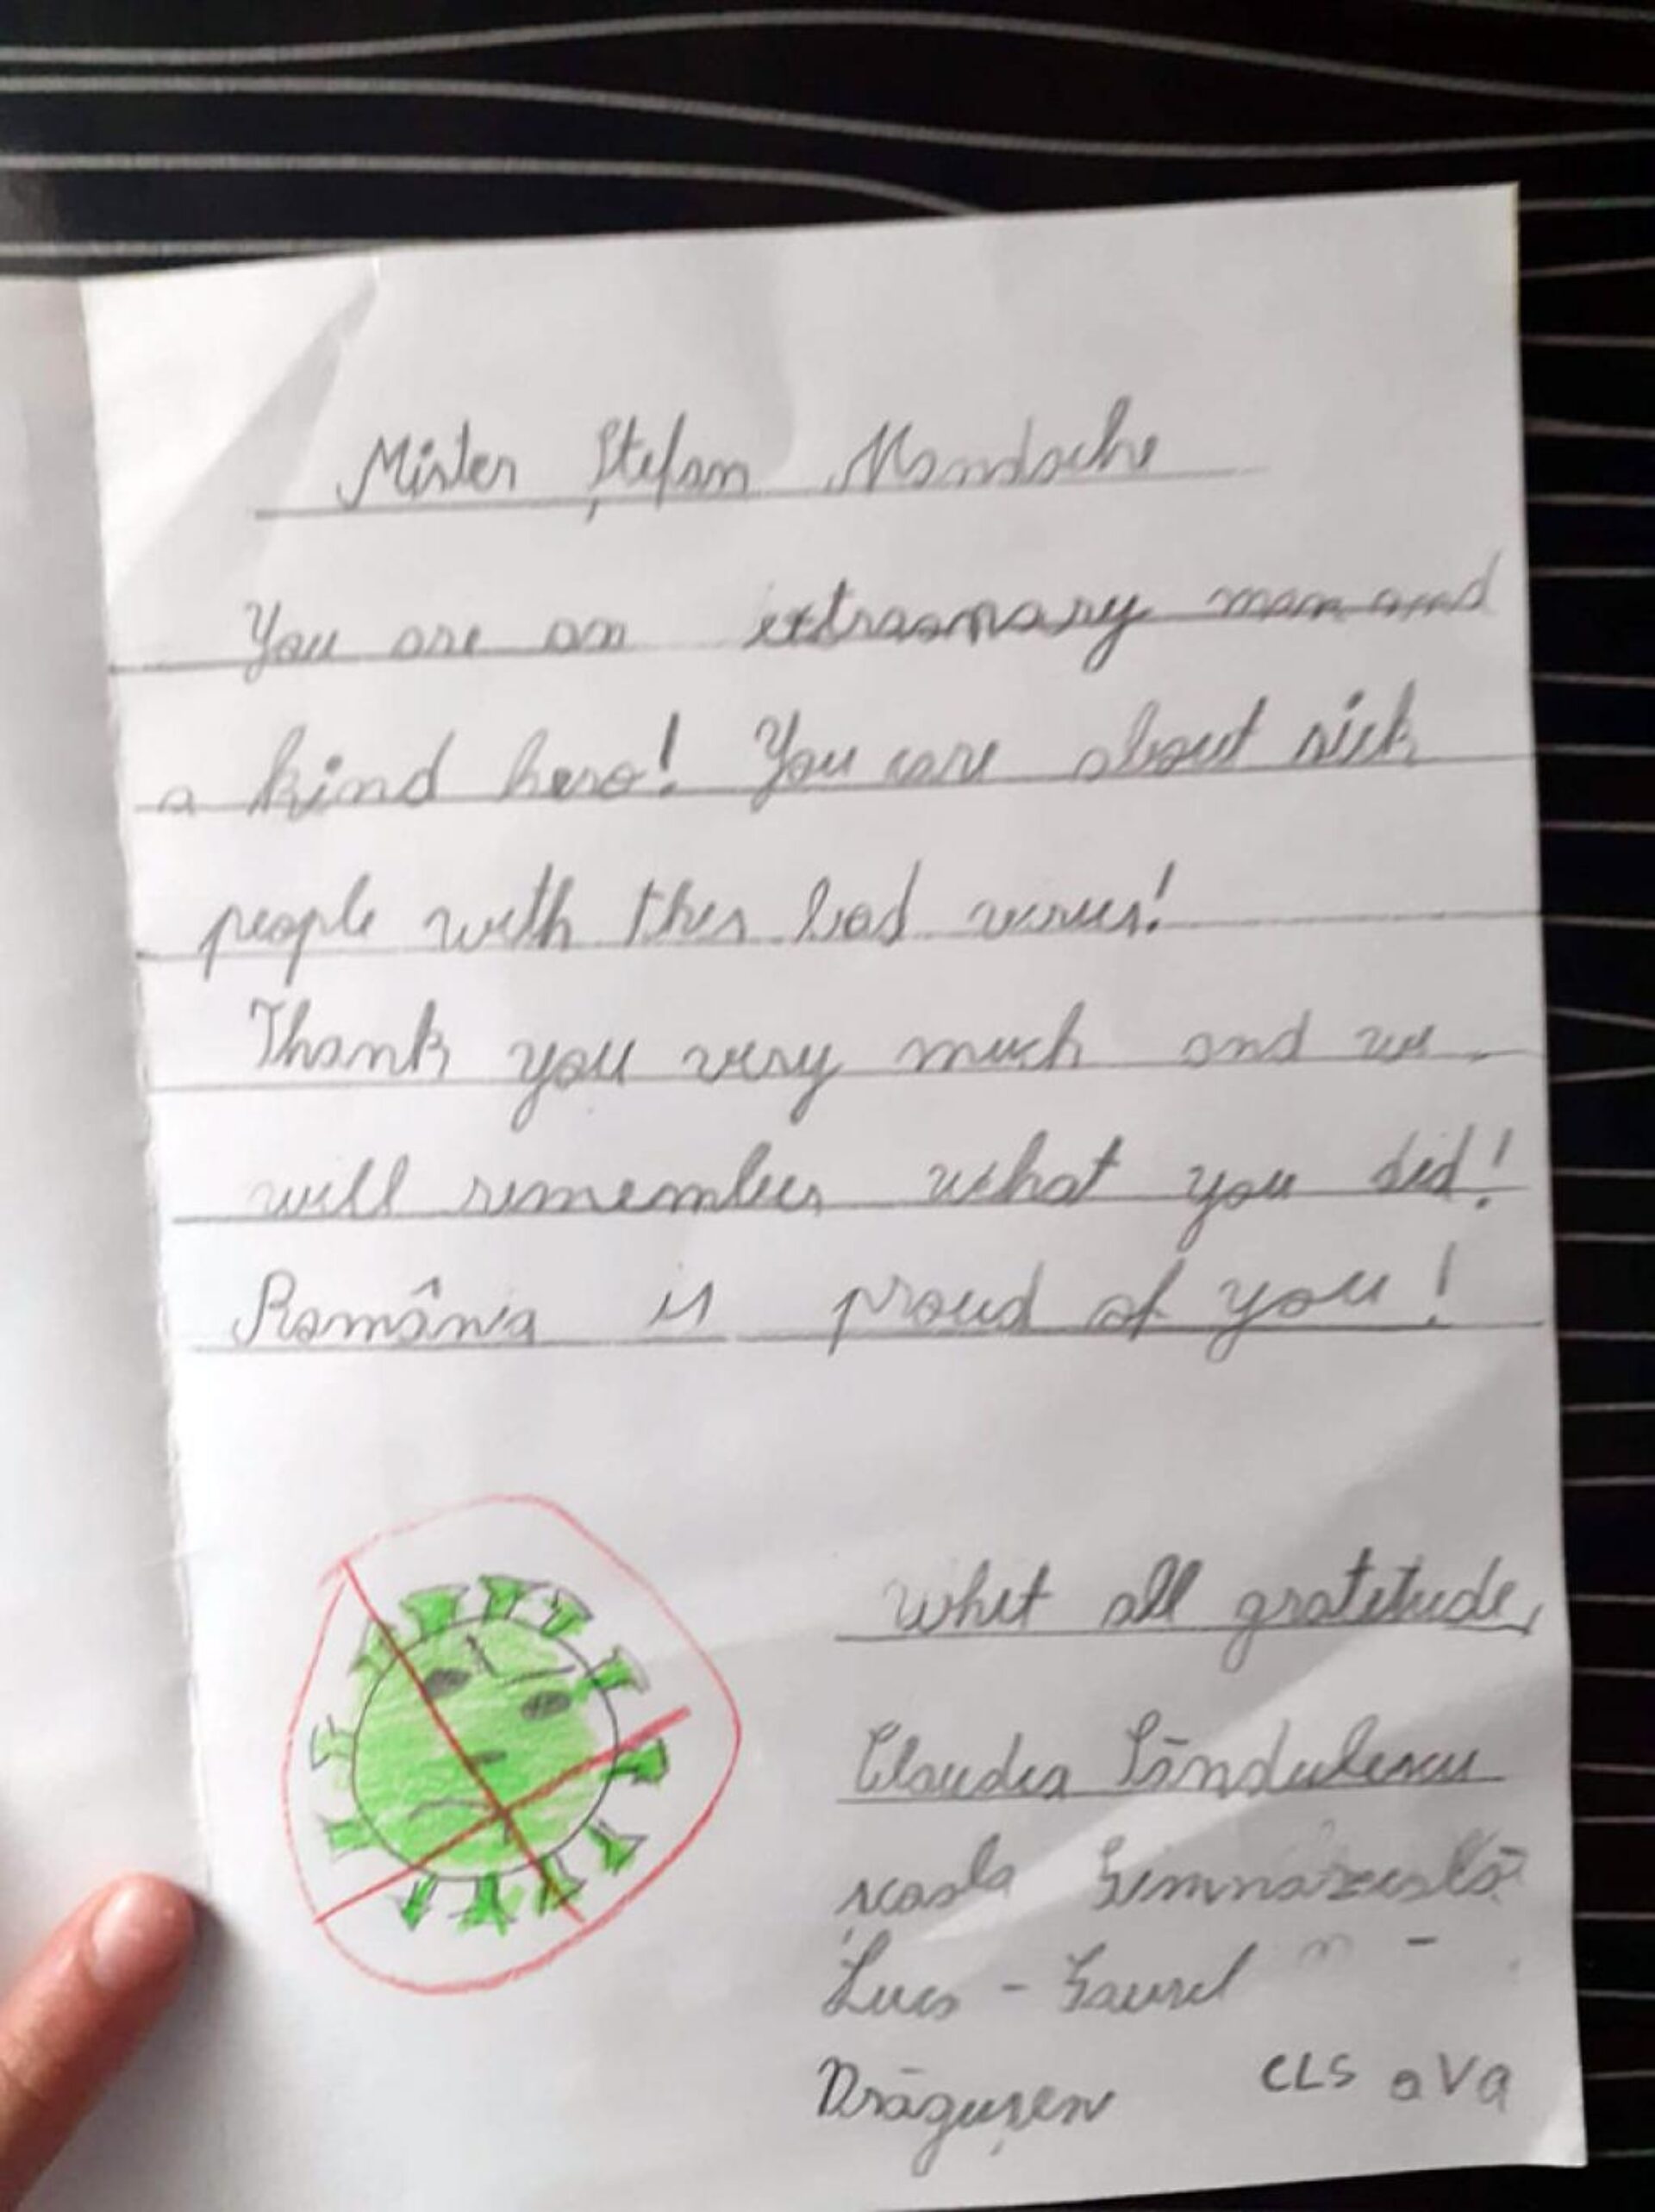 Mister Ștefan Mandache
You are an extraomary man and
a kind hero! You care about sick
people with this bad virus!
Thank you very much and we
will remember what you did!
România is proud of you!
Whit all gratitude,
Claudia Săndulescu
școala Gimnazială
Luca - Gavril
Drăgușeni CLS a Va